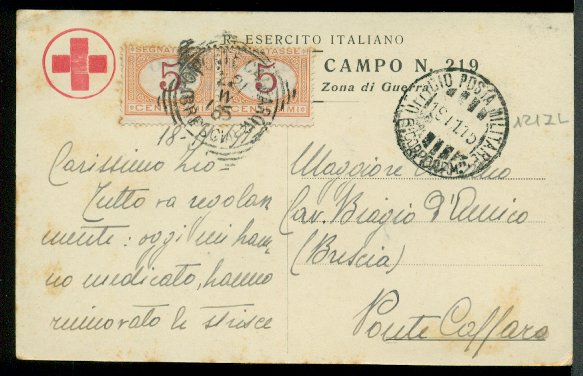 R. ESERCITO ITALIANO
CAMPO N. 219
Zona di Guerra
SEGNATASSE
5 5
CENTESIMI
UFFICIO POSTA MILITARE
1212L
18-
Carissimo zio-
Tutto va regolar
mente: oggi mi han
no medicato, hanno
rinnovato le strisce
Maggiore
Cav. Biagio d'Amico
(Brescia)
Ponte Caffaro